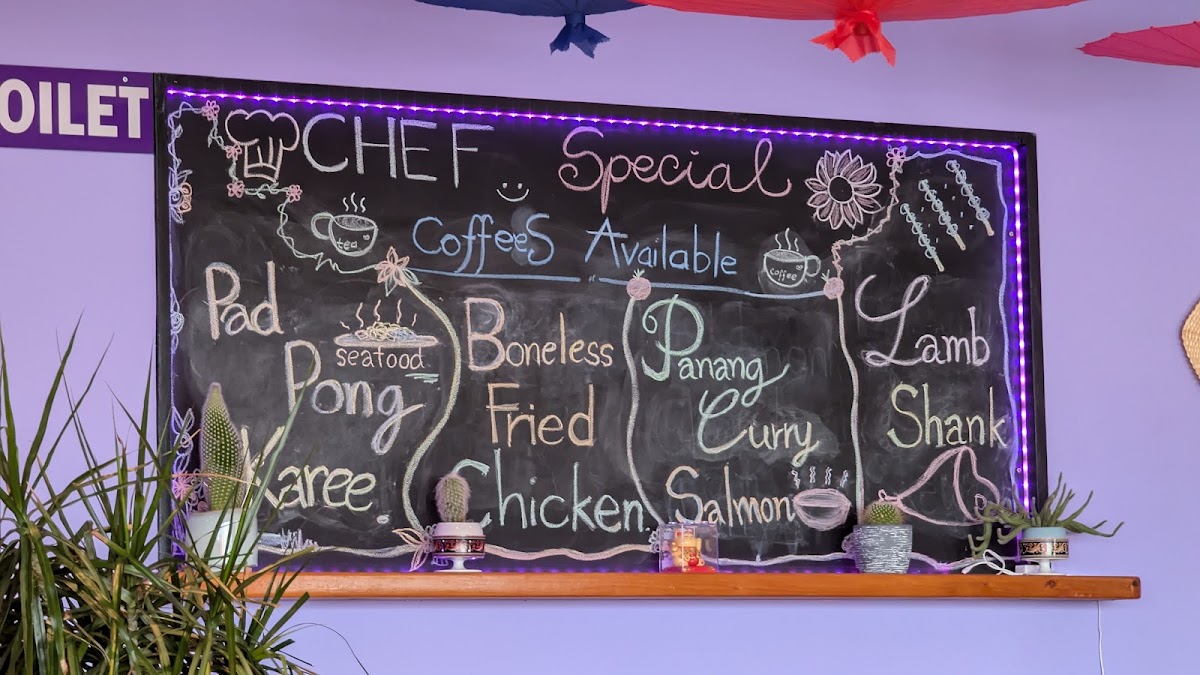 OILET
CHEF Special
tea
CoffeeS Available
coffee
Pad
Pong
Karee
seafood
Boneless
Fried
Chicken
Panang
Curry
Salmon
Lamb
Shank